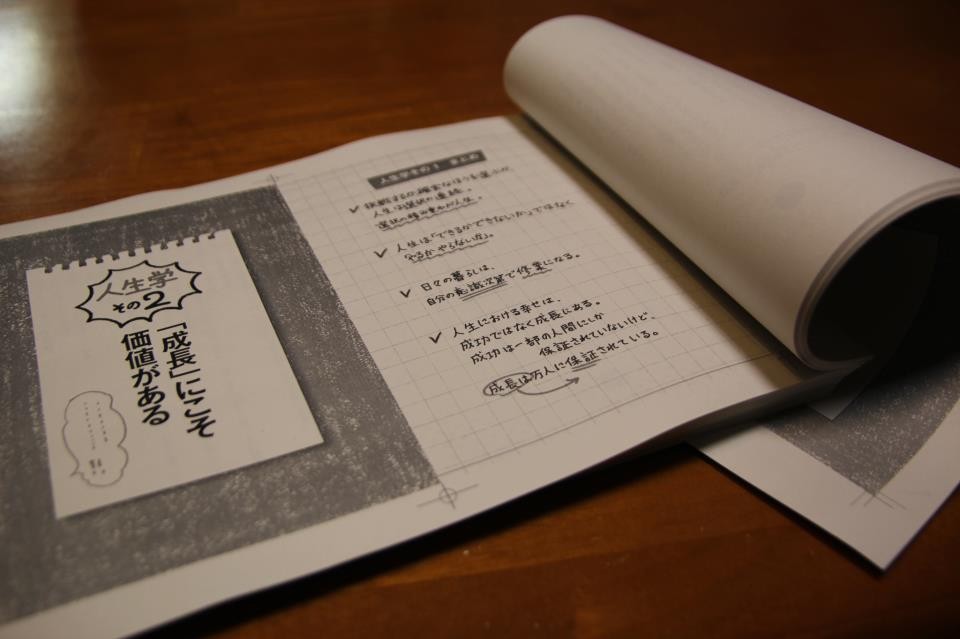 人生学
その2
「成長」にこそ
価値がある
人生学その1 まとめ
挑戦するか、確実なほうを選ぶか、
人生は選択の連続。
選択の積み重ねが人生。
人生は「できるかできないか」ではなく
「やるかやらないか」。
日々の暮らしは、
自分の意識次第で修業になる。
人生における幸せは、
成功ではなく成長にある。
成功は一部の人間にしか
保証されていないけど、
成長は万人に保証されている。